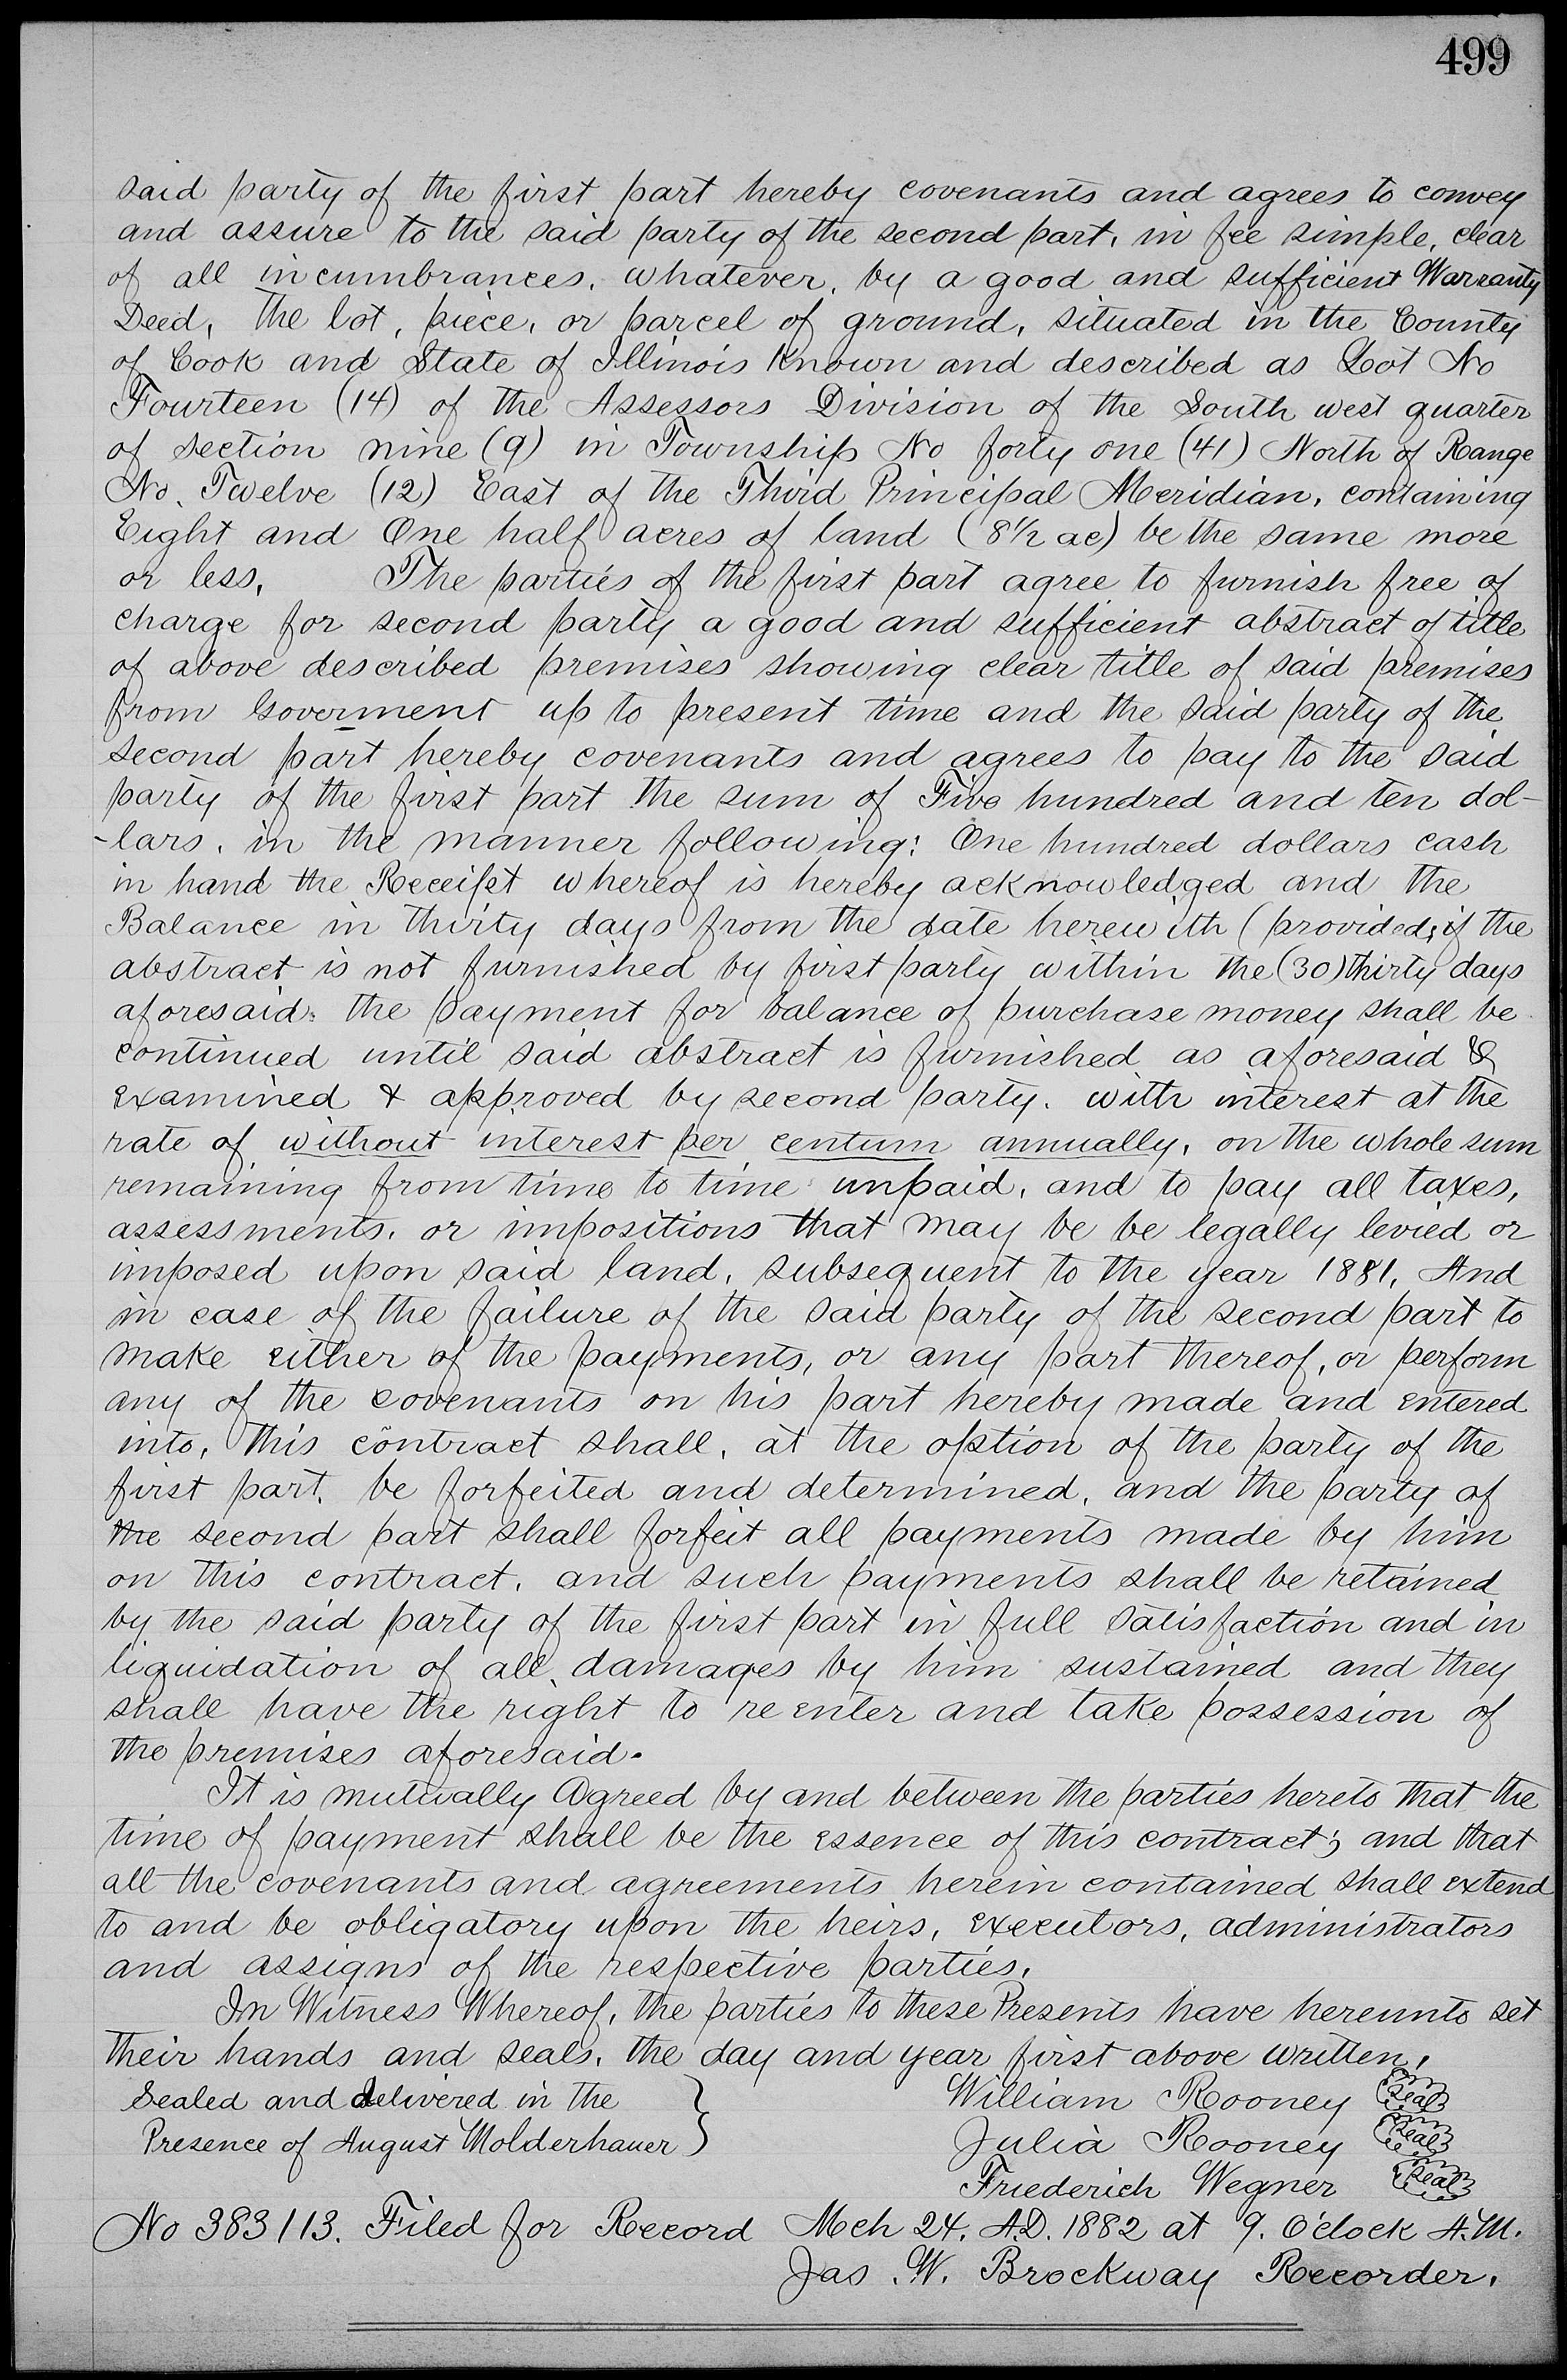 499
said party of the first part hereby covenants and agrees to convey
and assure to the said party of the second part, in fee simple, clear
of all incumbrances, whatever, by a good and sufficient Warranty
Deed, the lot, piece, or parcel of ground, situated in the County
of Cook and State of Illinois Known and described as Lot No
Fourteen (14) of the Assessors Division of the South west quarter
of section nine (9) in Township No forty one (41) North of Range
No. Twelve (12) East of the Third Principal Meridian, containing
Eight and One half acres of land (8 1/2 ac) be the same more
or less, The parties of the first part agree to furnish free of
charge for second party a good and sufficient abstract of title
of above described premises showing clear title of said premises
from Goverment up to present time and the said party of the
second part hereby covenants and agrees to pay to the said
party of the first part the sum of Five hundred and ten dol-
-lars, in the manner following: One hundred dollars cash
in hand the Receipt whereof is hereby acknowledged and the
Balance in thirty days from the date herewith (provided, if the
abstract is not furnished by first party within the (30) thirty days
aforesaid: the payment for balance of purchase money shall be
continued until said abstract is furnished as aforesaid &
examined & approved by second party. with interest at the
rate of without interest per centum annually, on the whole sum
remaining from time to time unpaid, and to pay all taxes,
assessments, or impositions that may be be legally levied or
imposed upon said land, subsequent to the year 1881, And
in case of the failure of the said party of the second part to
make either of the payments, or any part thereof, or perform
any of the covenants on his part hereby made and entered
into, this contract shall, at the option of the party of the
first part, be forfeited and determined, and the party of
the second part shall forfeit all payments made by him
on this contract, and such payments shall be retained
by the said party of the first part in full satisfaction and in
liquidation of all damages by him sustained and they
shall have the right to re enter and take possession of
the premises aforesaid.
It is mutually Agreed by and between the parties hereto that the
time of payment shall be the essence of this contract; and that
all the covenants and agreements herein contained shall extend
to and be obligatory upon the heirs, executors, administrators
and assigns of the respective parties.
In Witness Whereof, the parties to these Presents have hereunto set
their hands and seals, the day and year first above written,
Sealed and delivered in the } William Rooney Seal
Presence of August Molderhauer } Julia Rooney Seal
Friederich Wegner Seal
No 383113. Filed for Record Mch 24, A.D. 1882 at 9. O'clock A.M.
Jas. W. Brockway Recorder.